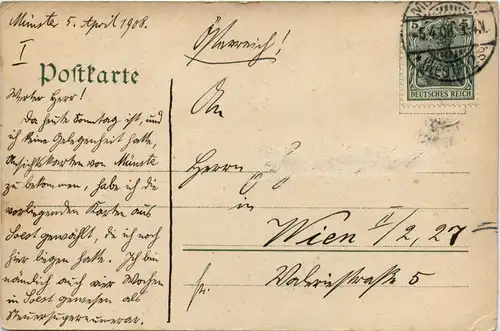 Münster 5. April 1908.
I
Österreich!
Postkarte
5 5
DEUTSCHES REICH
Werter Herr!
Da heute Sonntag ist, und
ich keine Gelegenheit hatte,
Ansichtskarten von Münster
zu bekommen, habe ich die
vorliegenden Karten aus
Soest gewählt, die ich noch
hier liegen hatte. Ich bin
nämlich auch vier Wochen
in Soest gewesen als
Steuersupernumerar.
An
Herrn
in
Wien II/2, 27
Valeriestraße 5